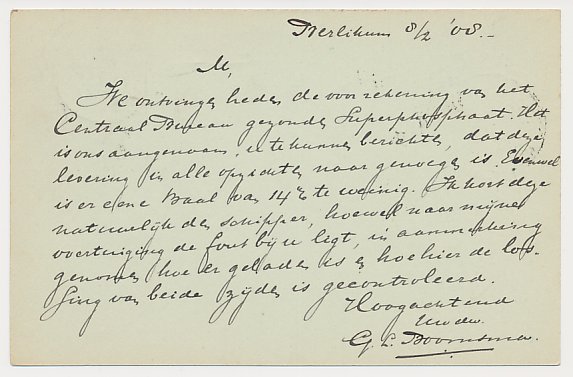 Berlikum 8/2 '08.-
M,
We ontvingen heden de voor rekening van het
Centraal Bureau gezonden Superphosphaat. Het
is ons aangenaam, u te kunnen berichten, dat deze
levering in alle opzichten naar genoegen is. Evenwel
is er eene Baal van 14% te weinig. Ik kort deze
natuurlijk den schipper, hoewel naar mijne
overtuiging de fout bij u ligt, in aanmerking
genomen hoe er geladen is en hoe hier de los-
sing van beide zijden is gecontroleerd.
Hoogachtend
Uwdw.
G. L. Boomsma.